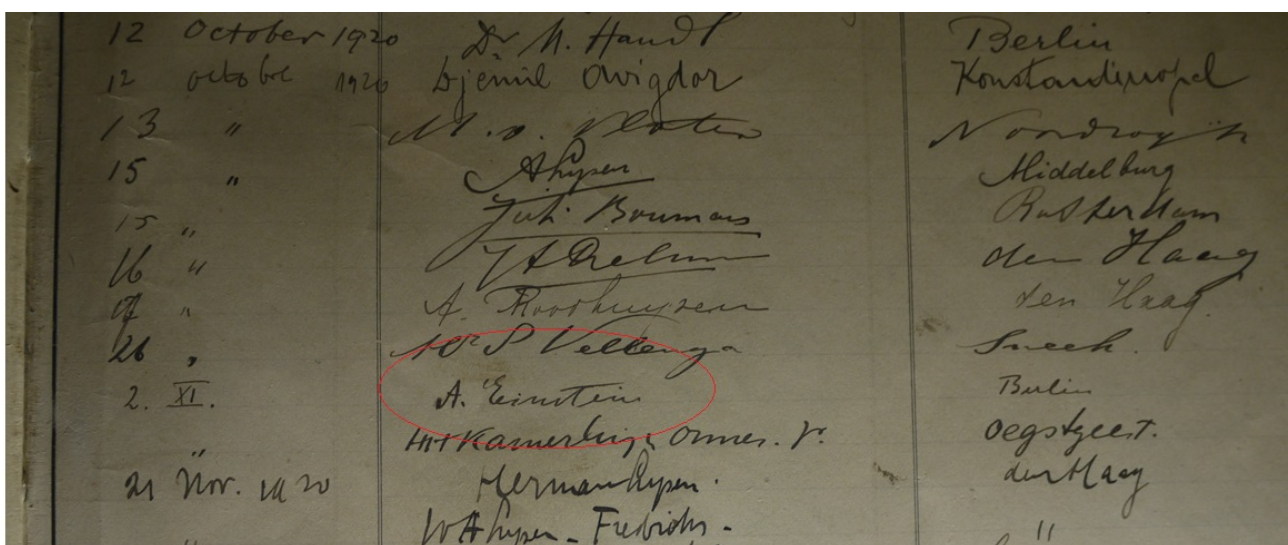 12 October 1920 Dr. M. Handl Berlin
12 octobre 1920 Djemil Avigdor Konstantinopel
13 " M. v. Vloten Noordwijk
15 " Middelburg
15 " Boumans Rotterdam
16 " den Haag
" A. Roothuyzen den Haag.
26 " Mr S Vellenga Sneek.
2. XI. A. Einstein Berlin
" Kamerlingh Onnes. Jr. Oegstgeest.
21 Nov. 1920 Herman den Haag
" "